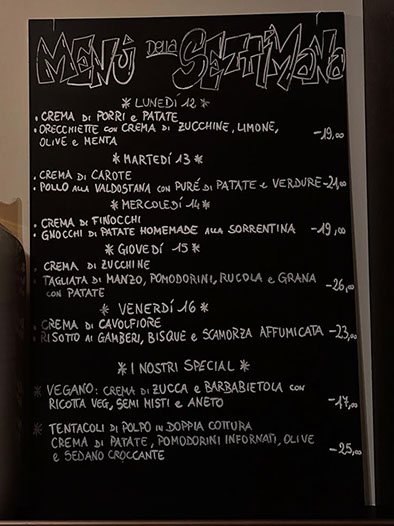 MENÙ DELLA SETTIMANA
* LUNEDÍ 12 *
• CREMA DI PORRI e PATATE
• ORECCHIETTE CON CREMA DI ZUCCHINE, LIMONE,
OLIVE e MENTA -19,00
* MARTEDÍ 13 *
• CREMA DI CAROTE
• POLLO ALLA VALDOSTANA CON PURÉ DI PATATE e VERDURE -21,00
* MERCOLEDÍ 14 *
• CREMA DI FINOCCHI
• GNOCCHI DI PATATE HOMEMADE ALLA SORRENTINA -19,00
* GIOVEDÍ 15 *
• CREMA DI ZUCCHINE
• TAGLIATA DI MANZO, POMODORINI, RUCOLA e GRANA
CON PATATE -26,00
* VENERDÍ 16 *
• CREMA DI CAVOLFIORE
• RISOTTO AI GAMBERI, BISQUE e SCAMORZA AFFUMICATA -23,00
* I NOSTRI SPECIAL *
* VEGANO: CREMA DI ZUCCA e BARBABIETOLA CON
RICOTTA VEG, SEMI MISTI e ANETO -17,00
* TENTACOLI DI POLPO IN DOPPIA COTTURA
CREMA DI PATATE, POMODORINI INFORNATI, OLIVE
e SEDANO CROCCANTE -25,00